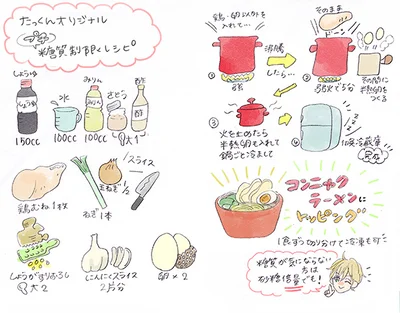 たっくんオリジナル
プチ糖質制限レシピ
しょうゆ
しょうゆ
150cc
水
100cc
みりん
みりん
100cc
さとう
大1
酢
酢
鶏むね1枚
ねぎ1本
玉ねぎ1/2
スライス
しょうがすりおろし
大2
にんにくスライス
2片分
卵×2
鶏・卵以外を
入れて…
①
強
沸騰
したら…
そのまま
②
弱火で5分
その間に
半熟卵を
つくる
③
火を止めたら
半熟卵を入れて
鍋ごと冷まして
④
冷蔵庫
コンニャク
ラーメンに
トッピング
1食ずつ切り分けて冷凍も可
糖質が気にならない
方は
砂糖倍量でも!